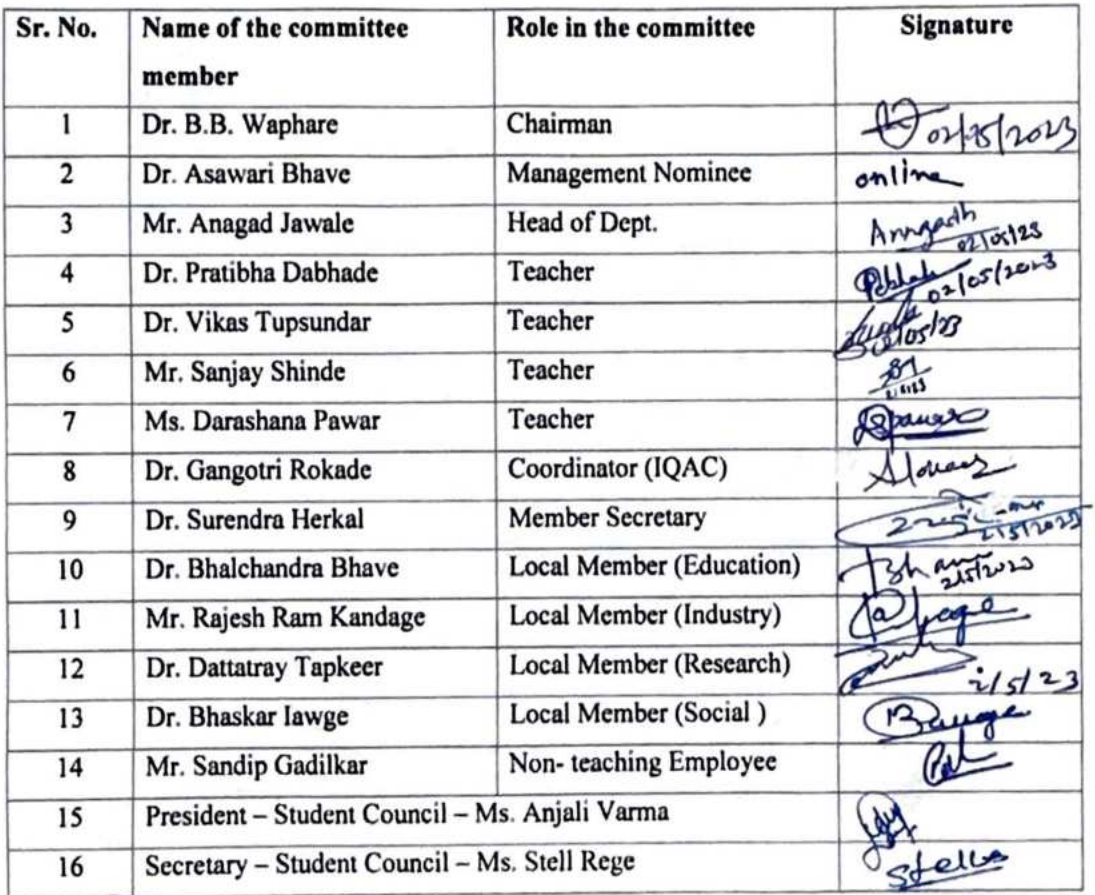 Sr. No. Name of the committee member Role in the committee Signature
1 Dr. B.B. Waphare Chairman 02/05/2023
2 Dr. Asawari Bhave Management Nominee online
3 Mr. Anagad Jawale Head of Dept. 02/05/23
4 Dr. Pratibha Dabhade Teacher 02/05/2023
5 Dr. Vikas Tupsundar Teacher 02/05/23
6 Mr. Sanjay Shinde Teacher
7 Ms. Darashana Pawar Teacher
8 Dr. Gangotri Rokade Coordinator (IQAC)
9 Dr. Surendra Herkal Member Secretary 2/5/2023
10 Dr. Bhalchandra Bhave Local Member (Education) 2/5/2023
11 Mr. Rajesh Ram Kandage Local Member (Industry)
12 Dr. Dattatray Tapkeer Local Member (Research) 2/5/23
13 Dr. Bhaskar Iawge Local Member (Social )
14 Mr. Sandip Gadilkar Non- teaching Employee
15 President – Student Council – Ms. Anjali Varma
16 Secretary – Student Council – Ms. Stell Rege Stella